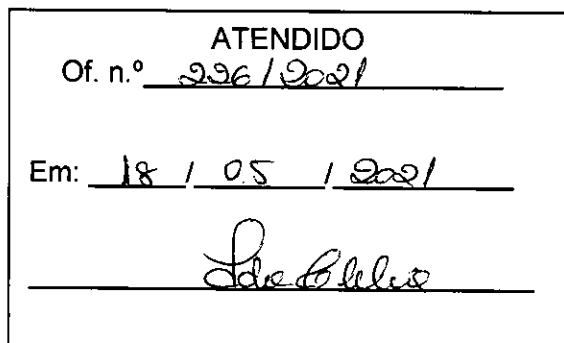 ATENDIDO
Of. n.º 226/2021
Em: 18 / 05 / 2021